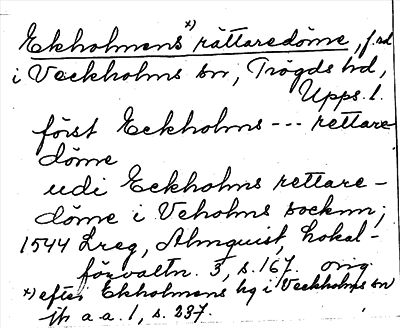 Ekholmens *) rättaredöme, f.ud
i Veckholms sn, Trögds hd,
Upps. l.
först Eckholms --- rettare
döme
udi Eckholms rettare-
döme i Veholms socknn;
1544 Lreg, Almquist, Lokal-
förvaltn. 3, s. 167. orig.
*) efter Ekholmens hg i Veckholms sn
jfr a a. 1, s. 237.